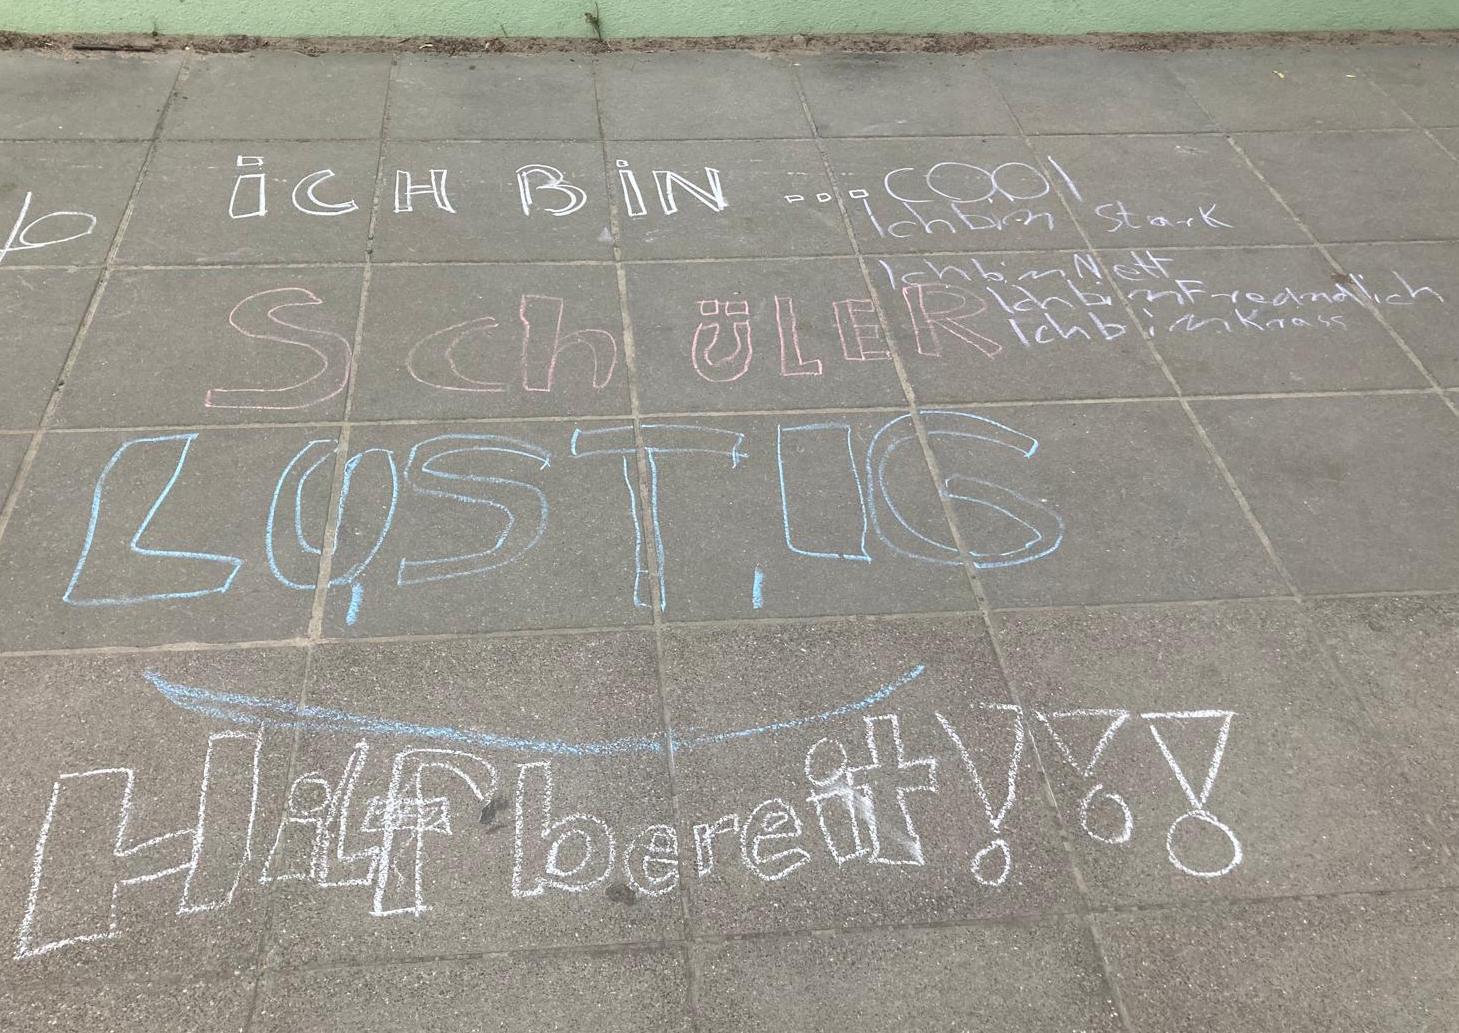 iCH BiN ...COOl
Ichbin Stark
IchbinNett
SchüLER
IchbinFreandlich
IchbinKrass
LUSTIG
Hilfbereit!!!